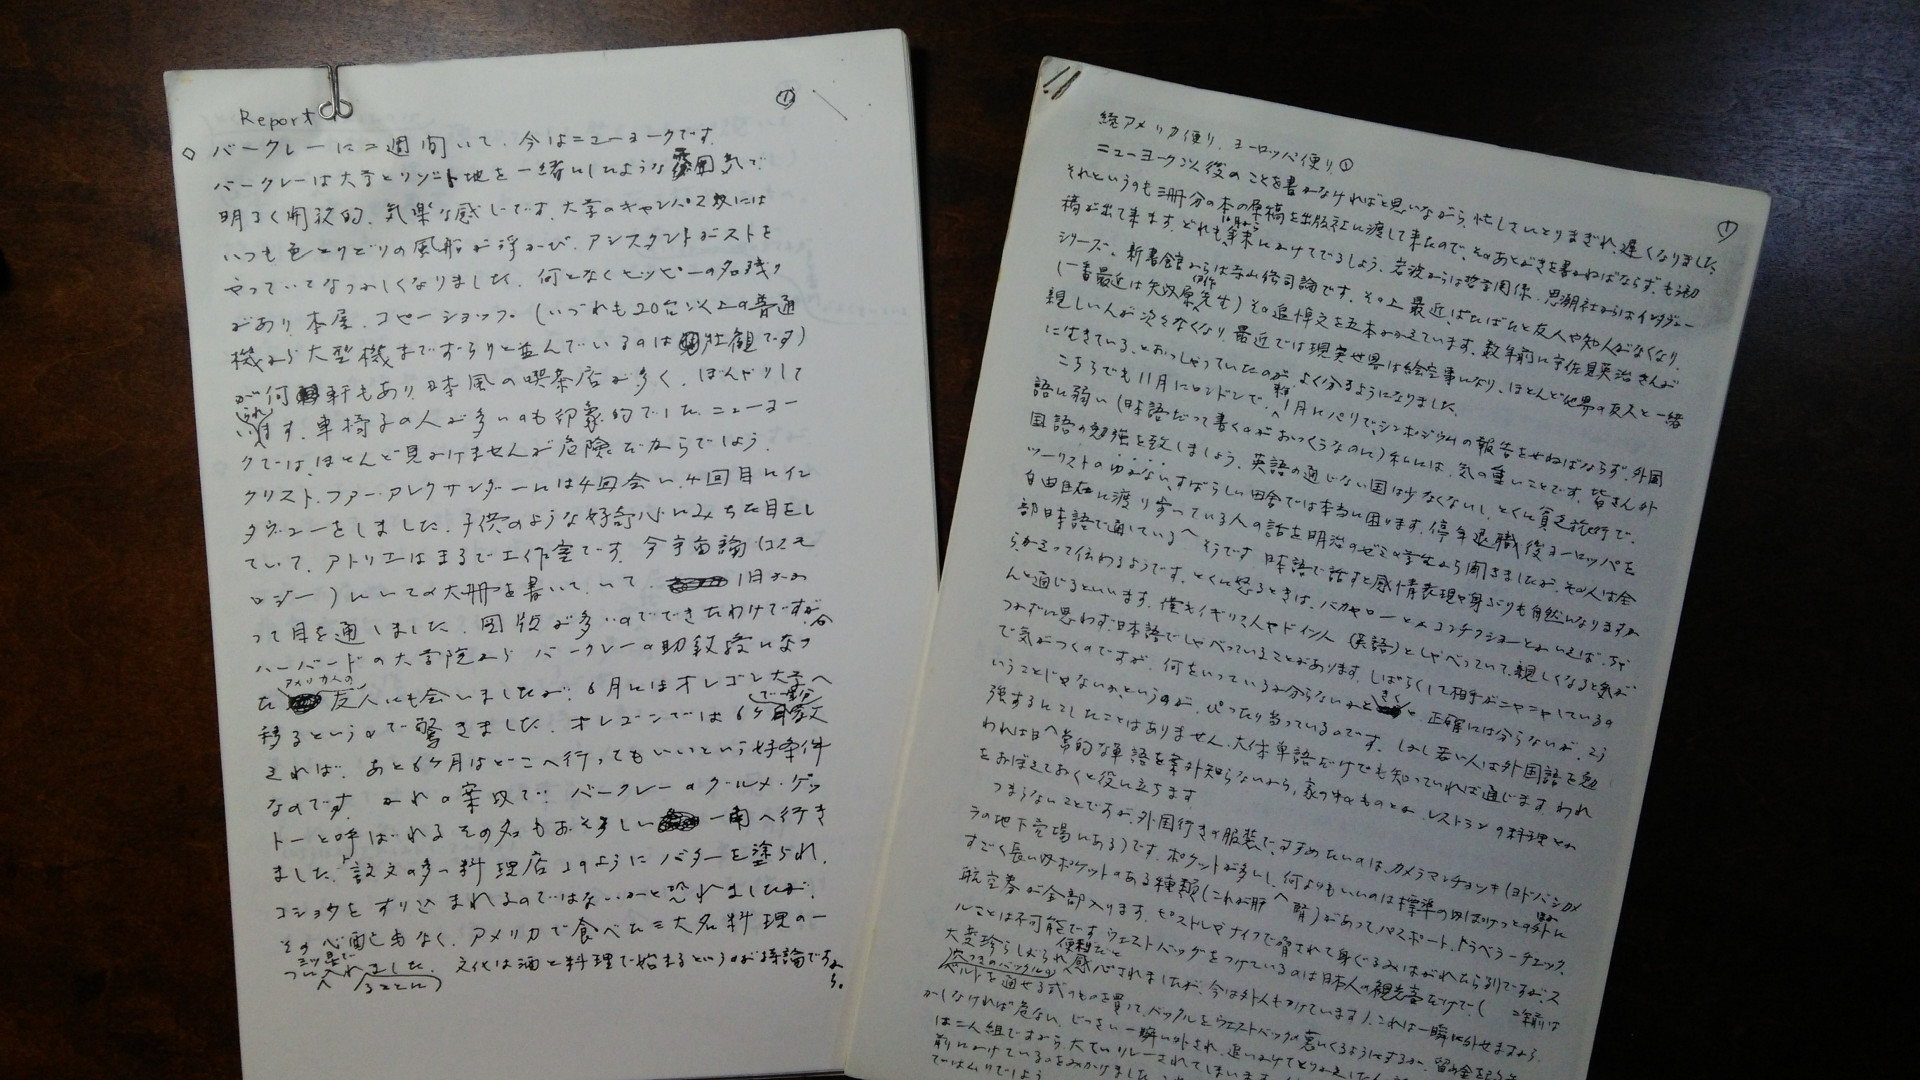 Report
①
◇ バークレーに二週間いて、今はニューヨークです。
バークレーは大学とリゾート地を一緒にしたような雰囲気で
明るく開放的、気楽な感じです。大学のキャンパスには
いつも色とりどりの風船が浮かび、アシスタントがストを
やっていてなつかしくなりました。何となくヒッピーの名残り
があり、本屋、コピーショップ。(いづれも20台以上の普通
機から大型機までずらりと並んでいるのは壮観です)
が何軒もあり、日本風の喫茶店が多く、ぼんやりして
います。車椅子の人が多いのも印象的でした。ニューヨー
られ
クではほとんど見かけませんが危険だからでしょう。
クリストファー・アレクサンダーには4回会い、4回目にイン
タヴューをしました。子供のような好奇心にみちた目をし
ていて、アトリエはまるで工作室です。今宇宙論(コスモ
ロジー)についての大冊を書いていて、1月かか
って目を通しました。図版が多いのでできたわけですが。
ハーバードの大学院からバークレーの助教授になっ
た友人にも会いましたが、6月にはオレゴン大学へ
アメリカ人の
移るというので驚きました。オレゴンでは6ヶ月教
えれば、あと6ヶ月はどこへ行ってもいいという好条件
なのです。かれの案内で、バークレーのグルメ・ゲッ
トーと呼ばれるその名もおそろしい一角へ行き
ました。「註文の多い料理店」のようにバターを塗られ、
コショウをすり込まれるのではないかと恐れましたが、
その心配もなく、アメリカで食べた三大名料理の一
つに入れました。文化は酒と料理で始まるというのが持論ですから。
続アメリカ便り、ヨーロッパ便り①
①
ニューヨーク以後のことを書かなければと思いながら、忙しさにとりまぎれ遅くなりました。
それというのも三冊分の本の原稿を出版社に渡して来たので、そのあとがきを書かねばならず、もう初
稿が出て来ます。どれも年末にかけてでるでしょう。岩波からは哲学関係、思潮社からはインタヴュー
シリーズ、新書館からは寺山修司論です。その上、最近、ばたばたと友人や知人がなくなり、
(一番最近は矢内原伊作先生)その追悼文を五本かかえています。数年前に宇佐見英治さんが
親しい人が次々なくなり、最近では現実世界は絵空事になり、ほとんど他界の友人と一緒
に生きている、とおっしゃっていたのが、よく分るようになりました。
こちらでも11月にロンドンで、1月にパリで、シンポジウムの報告をせねばならず、外国
語に弱い(日本語だって書くのがおっくうなのに)私には、気の重いことです。皆さん外
国語の勉強を致しましょう。英語の通じない国は少なくないし、とくに貧乏旅行で、
ツーリストのゆかない、すばらしい田舎では本当に困ります。停年退職後ヨーロッパを
自由自在に渡り歩いている人の話を明治のゼミの学生から聞きましたが、その人は全
部日本語で通しているそうです。日本語で話すと感情表現や身ぶりも自然になりますか
ら、かえって伝わるようです。とくに怒るときは、バカヤローとかコンチクショーとかいえば、ちゃ
んと通じるといいます。僕もイギリス人やドイツ人(英語)としゃべっていて、親しくなると気が
つかずに思わず日本語でしゃべっていることがあります。しばらくして相手がニヤニヤしているの
で気がつくのですが、何をいっているか分らないかときくと、正確には分らないが、こう
いうことじゃないかというのが、ぴったり当っているのです。しかし若い人は外国語を勉
強するにこしたことはありません。大体単語だけでも知っていれば通じます。われ
われは日常的な単語を案外知らないから、家の中のものとか、レストランの料理とか
をおぼえておくと役に立ちます。
つまらないことですが、外国行きの服装で、すすめたいのは、カメラマンチョッキ(ヨドバシカメ
ラの地下売場にある)です。ポケットが多いし、何よりもいいのは標準のポケットの外に
すごく長いポケットのある種類(これが肝腎)があって、パスポート、トラベラーチェック、
航空券が全部入ります。ピストルやナイフで脅されて身ぐるみはがれたら別ですが、ス
ルことは不可能です。ウェストバッグをつけているのは日本人の観光客だけで、(二年前は
大変珍らしがられ便利だと感心されましたが、今は外人もつけています)、これは一瞬に外せますから、
ベルトを通せる式のものを買って、バックルをウェストバッグの裏にくるようにするか、
かしなければ危ない。
前にかけているのをみかけました。